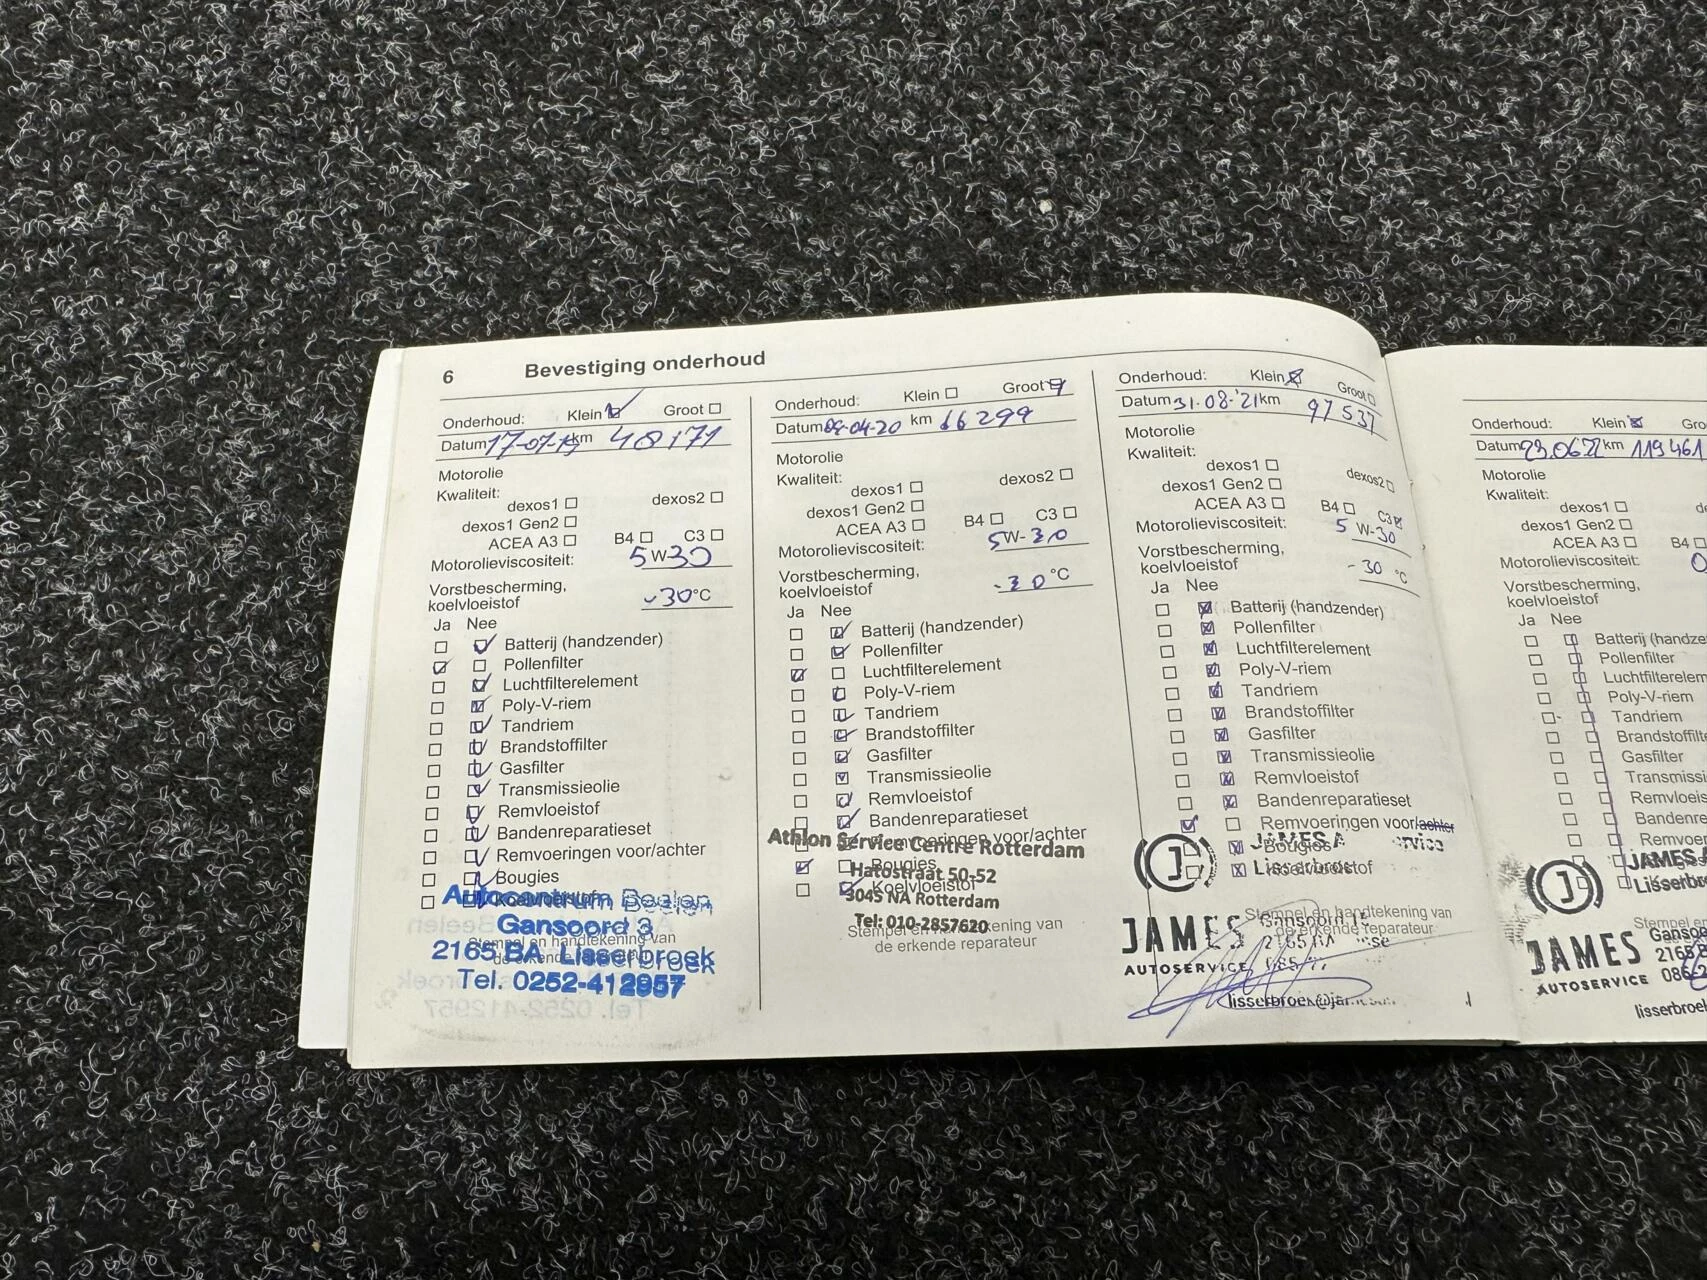 6 Bevestiging onderhoud
Onderhoud: Klein Groot
Datum 17-07-19 km 48171
Motorolie
Kwaliteit:
dexos1 dexos2
dexos1 Gen2
ACEA A3 B4 C3
Motorolieviscositeit: 5 W-30
Vorstbescherming,
koelvloeistof -30°C
Ja Nee
Batterij (handzender)
Pollenfilter
Luchtfilterelement
Poly-V-riem
Tandriem
Brandstoffilter
Gasfilter
Transmissieolie
Remvloeistof
Bandenreparatieset
Remvoeringen voor/achter
Bougies
Koelvloeistof
Autocentrum Beelen
Gansoord 3
Stempel en handtekening van
2165 BA Lisserbroek
Tel. 0252-412957
Onderhoud: Klein Groot
Datum 09-04-20 km 66299
Motorolie
Kwaliteit:
dexos1 dexos2
dexos1 Gen2
ACEA A3 B4 C3
Motorolieviscositeit: 5W-30
Vorstbescherming,
koelvloeistof -30°C
Ja Nee
Batterij (handzender)
Pollenfilter
Luchtfilterelement
Poly-V-riem
Tandriem
Brandstoffilter
Gasfilter
Transmissieolie
Remvloeistof
Bandenreparatieset
Remvoeringen voor/achter
Athlon Service Centre Rotterdam
Bougies
Hatostraat 50-52
Koelvloeistof
3045 NA Rotterdam
Tel: 010-2857620
Stempel en handtekening van
de erkende reparateur
Onderhoud: Klein Groot
Datum 31-08-'21 km 97537
Motorolie
Kwaliteit:
dexos1 dexos2
dexos1 Gen2
ACEA A3 B4 C3
Motorolieviscositeit: 5 W-30
Vorstbescherming,
koelvloeistof -30 °C
Ja Nee
Batterij (handzender)
Pollenfilter
Luchtfilterelement
Poly-V-riem
Tandriem
Brandstoffilter
Gasfilter
Transmissieolie
Remvloeistof
Bandenreparatieset
Remvoeringen voor/achter
Bougies
Koelvloeistof
JAMES
Lisserbroek
Stempel en handtekening van
de erkende reparateur
JAMES
AUTOSERVICE
Onderhoud: Klein
Datum 23.06.22 km 119461
Motorolie
Kwaliteit:
dexos1
dexos1 Gen2
ACEA A3 B4
Motorolieviscositeit: 0
Vorstbescherming,
koelvloeistof
Ja Nee
Pollenfilter
Poly-V-riem
Tandriem
Gasfilter
JAMES
JAMES
AUTOSERVICE